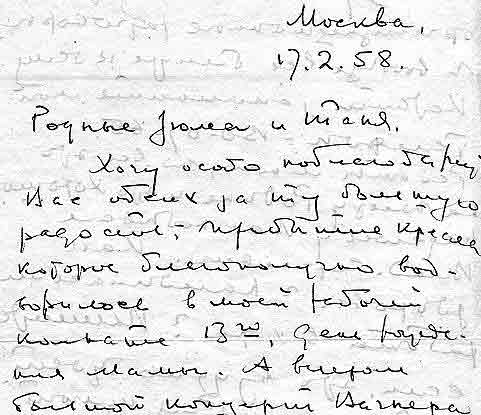 Москва,
17.2.58.
Родные Зюма и Таня.
Хочу особо поблагодарить
Вас обоих за ту большую
радость, прибытие кресла
которое благополучно вод-
ворилось в моей рабочей
комнате 13го, день рожде-
ния Мамы. А вечером
большой концерт Вагнера